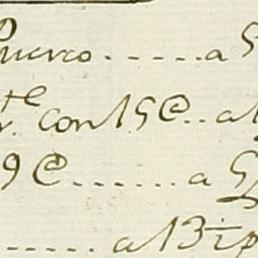 Puerco......a 5
te con 15@..a
9@......a 5
.....a 13½p